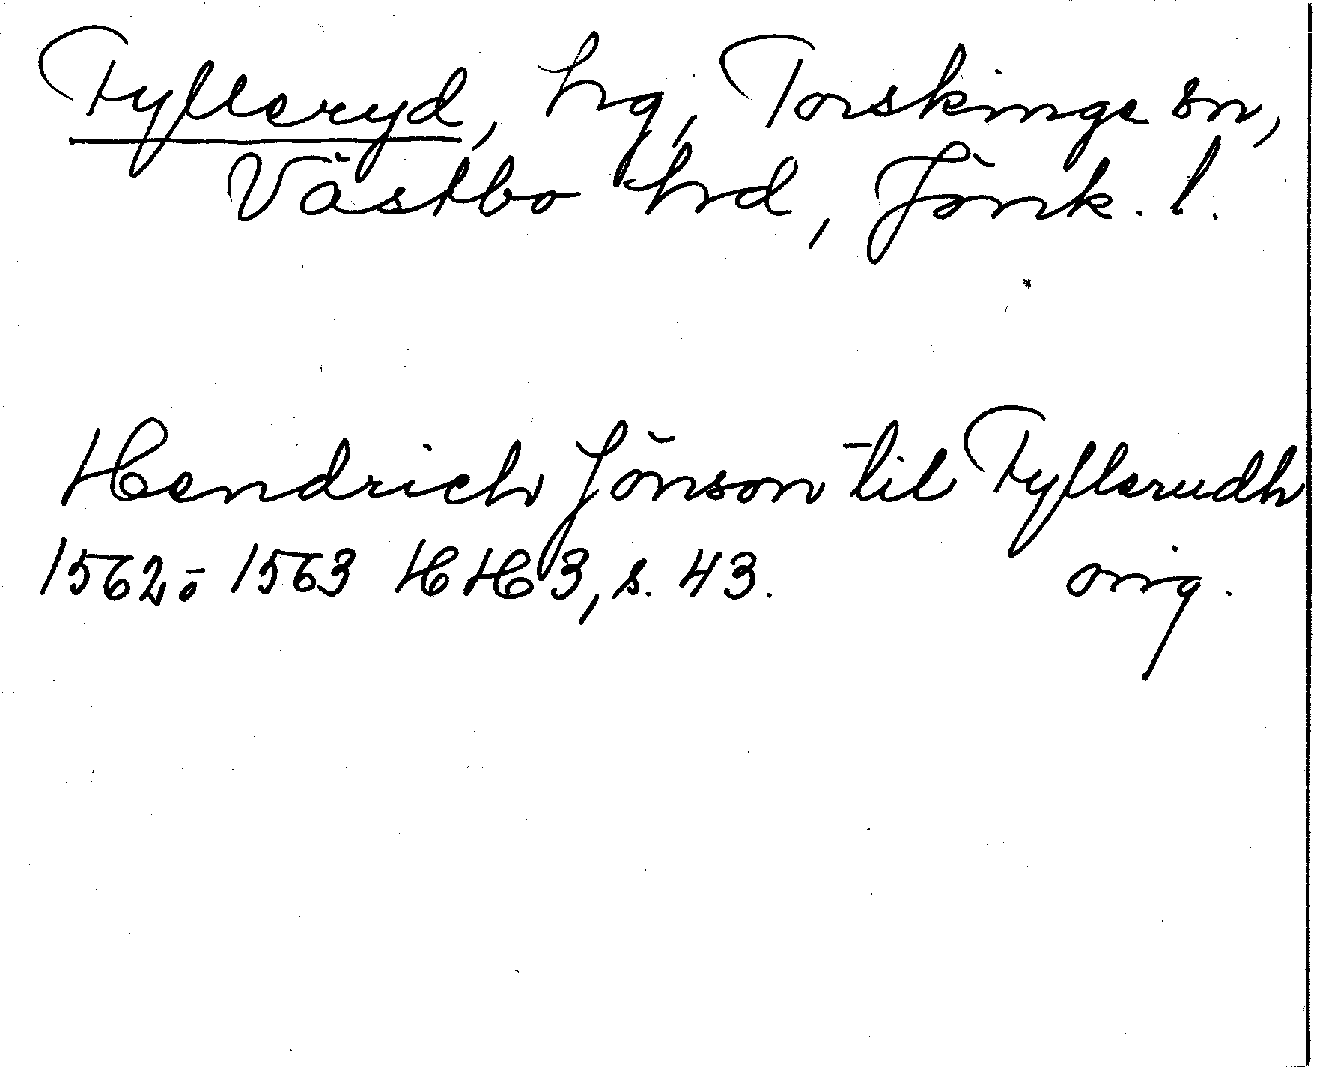 Tyfleryd, hg, Torskinge sn,
Västbo hrd, Jönk. l.
Hendrich Jönson til Tyflerudh
1562 o 1563 HH 3, s. 43. orig.